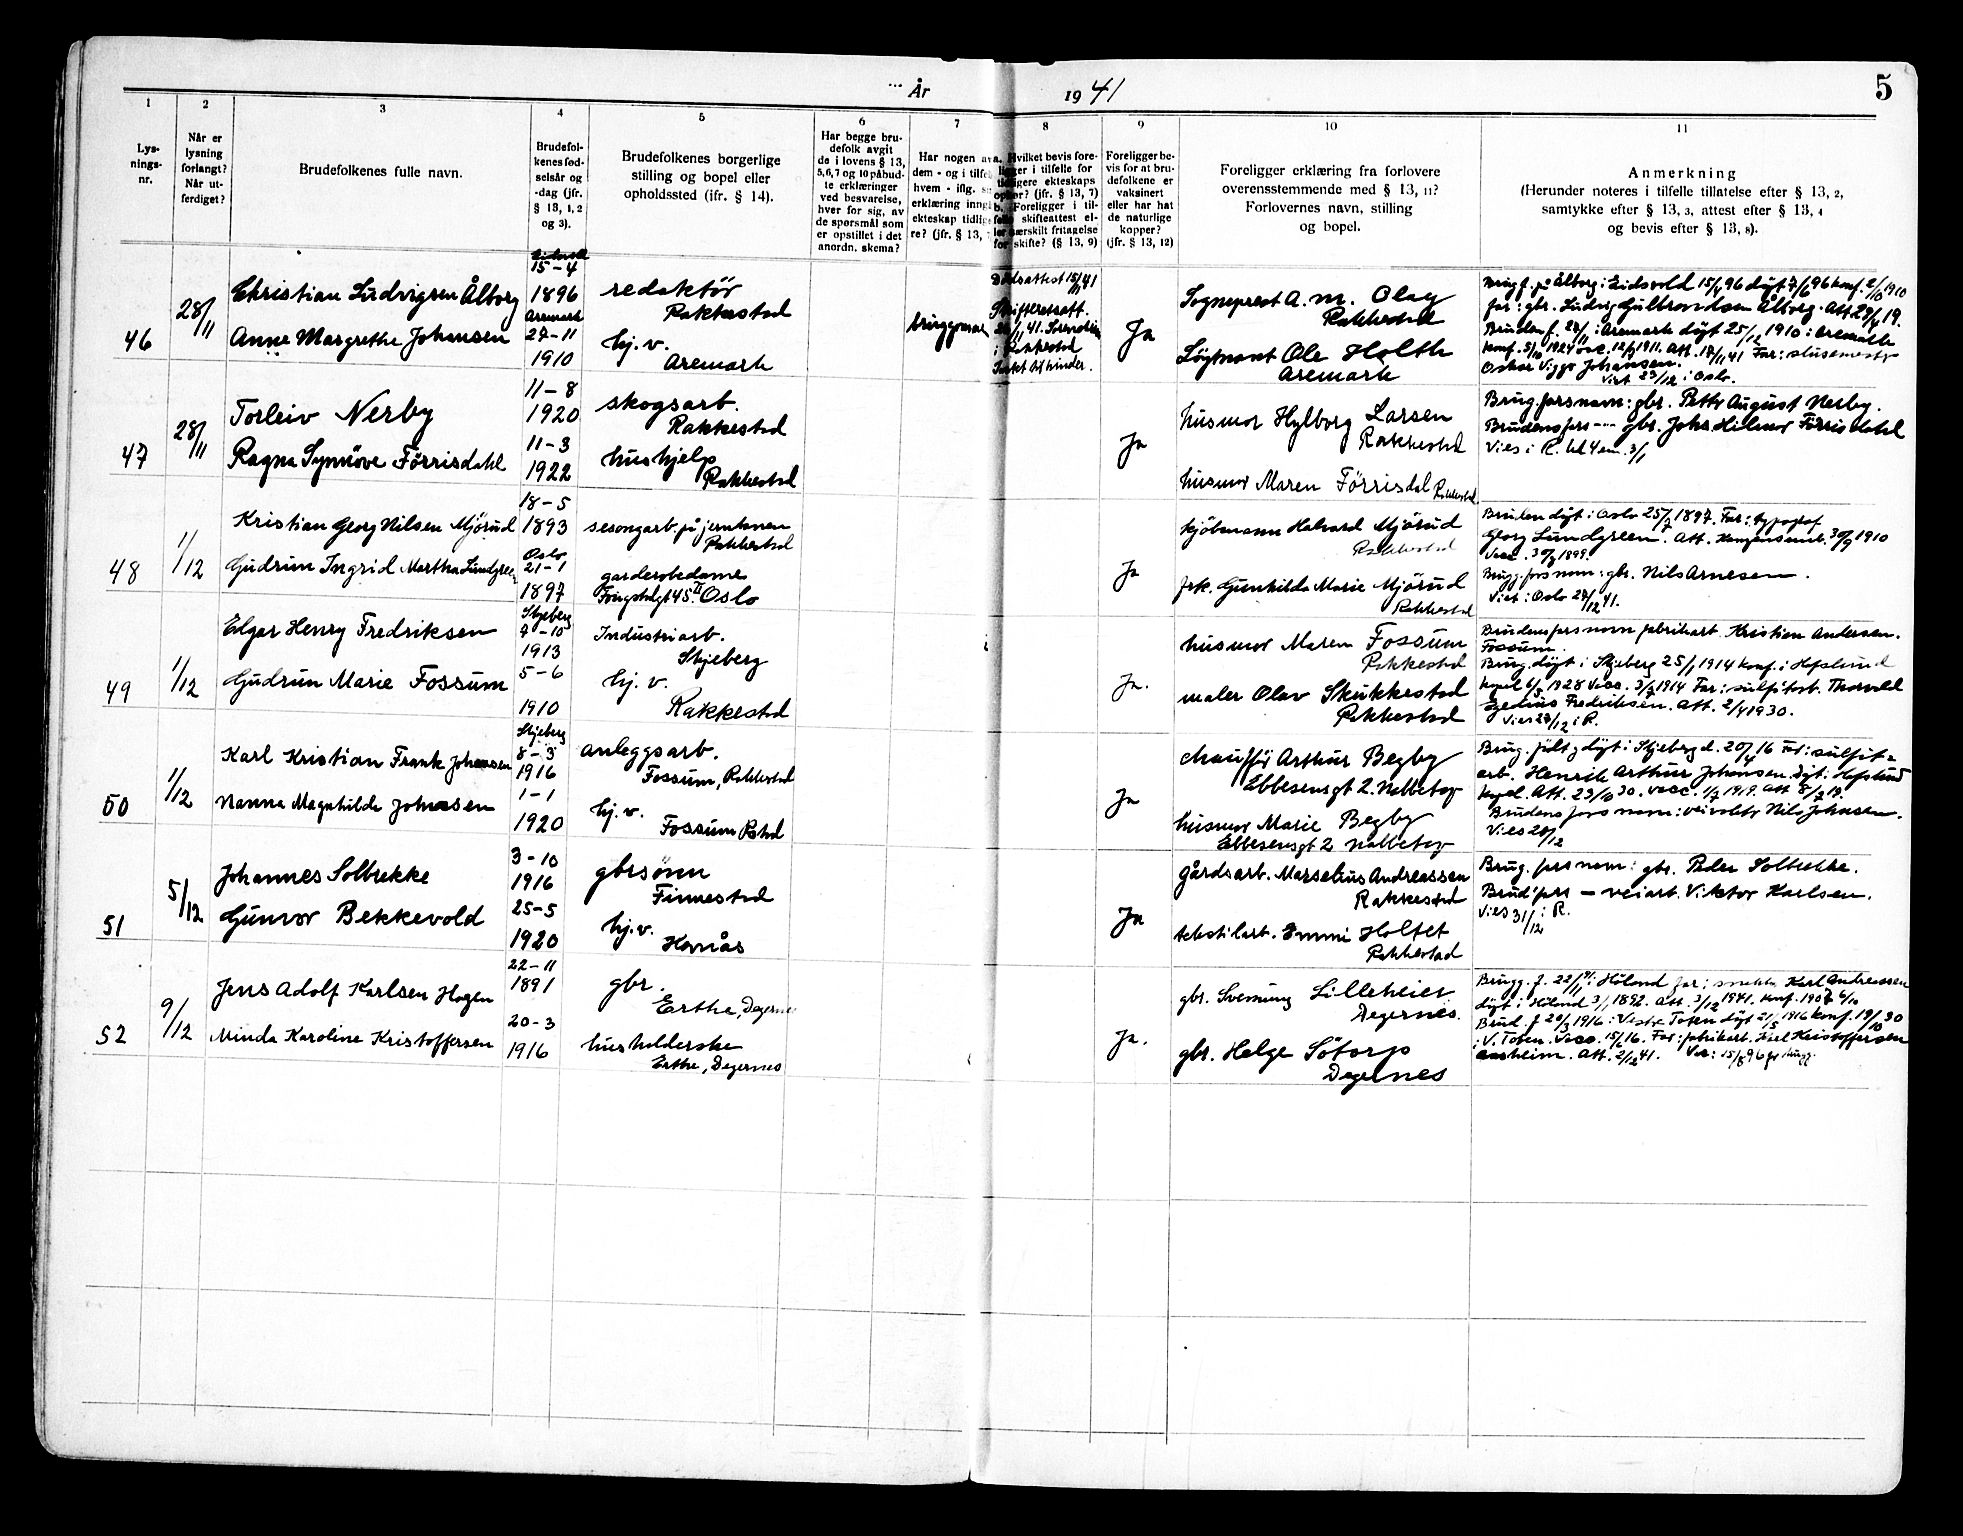 År 1941
5
1 2 3 4 5 6 7 8 9 10 11
Lys-
nings-
nr.
Når er
lysning
forlangt?
Når ut-
ferdiget?
Brudefolkenes fulle navn.
Brudefol-
kenes fød-
selsår og
-dag (jfr.
§ 13, 1, 2
og 3).
Brudefolkenes borgerlige
stilling og bopel eller
opholdssted (ifr. § 14).
Har begge bru-
defolk avgit
de i lovens § 13,
5,6,7 og 10 påbud-
te erklæringer
ved besvarelse,
hver for sig, av
de spørsmål som
er opstillet i det
anordn. skema?
Har nogen av
dem - og i tilfel
hvem - iflg.
erklæring inngå
ekteskap tidlige
re? (jfr. § 13,
Hvilket bevis fore-
ligger i tilfelle for
tidligere ekteskaps
ophør? (jfr. § 13, 7)
b. Foreligger i til-
felle skifteattest el-
ler særskilt fritagelse
for skifte? (§ 13, 9)
Foreligger be-
vis for at bru-
defolkene er
vaksinert
eller har hat
de naturlige
kopper?
(jfr. § 13, 12)
Foreligger erklæring fra forlovere
overensstemmende med § 13, 11?
Forlovernes navn, stilling
og bopel.
Anmerkning
(Herunder noteres i tilfelle tillatelse efter § 13, 2,
samtykke efter § 13, 3, attest efter § 13, 4
og bevis efter § 13, 8).
46
28/11
Christian Ludvigsen Ålborg
Anne Margrethe Johansen
15-4
1896
Aremark
27-11
1910
redaktør
Rakkestad
hj. v.
Aremark
brudgommen
Dødsattest 15/11 41
Skifterettsatt.
i Rakkestad
Intet til hinder.
Ja
Sogneprest A. M. Olay
Rakkestad
Løytnant Ole Holth
Aremark
Brugg. f. på Ålborg i Eidsvold 15/4 96 døpt 7/6 96 konf. 2/10 1910
far: gbr. Ludvig Gulbrandsen Ålborg. Att 29/4 19.
Bruden f. 27/11 i Aremark døpt 25/12 1910 i Aremark
konf. 5/10 1924 vac. 12/9 1911. Att. 18/11 41 Far: slusemester
Oskar Viggo Johansen.
Viet 23/12 i Oslo.
47
28/11
Torleiv Nerby
Ragna Synnöve Förrisdahl
11-8
1920
11-3
1922
skogsarb.
Rakkestad
hushjelp
Rakkestad
Ja
husmor Hylborg Larsen
Rakkestad
husmor Maren Förrisdal Rakkestad
Brug. farsnavn: gbr. Petter August Nerby.
Brudens fars --- gbr. Johs Hilmar Förrisdahl
Vies i R. kl 4 em. 3/1
48
1/12
Kristian Georg Nilsen Mjörud
Gudrun Ingrid Martha Lundgreen
18-5
1893
Oslo
21-1
1897
sesongarb. på jernbanen
Rakkestad
garderobedame
45 II Oslo
Ja
kjöbmann Halvard Mjörud
Rakkestad
frk. Gunhilda Marie Mjörud
Rakkestad
Bruden døpt i Oslo 25/7 1897. Far: typograf
Georg Lundgreen. Att. 30/9 1910
Vacc. 30/9 1899.
Brugg. fars navn: gbr. Nils Arnesen.
Viet i Oslo 27/12 41.
49
1/12
Edgar Henry Fredriksen
Gudrun Marie Fossum
Skjeberg
7-10
1913
5-6
1910
Industriarb.
Skjeberg
hj. v.
Rakkestad
Ja.
husmor Maren Fossum
Rakkestad
maler Olav Skukkestad
Rakkestad
Brudens fars navn fabrikarb. Kristian Andersen.
Fossum.
Brug. døpt i Skjeberg 25/1 1914 konf. i Hafslund
kapel 6/5 1928 Vacc. 3/7 1914 Far: sulfitarb. Thorvald
Egelius Fredriksen. Att. 2/4 1930.
Vies 27/12 i R.
50
1/12
Karl Kristian Frank Johansen
Nanna Magnhilde Johnsen
Skjeberg
8-3
1916
1-1
1920
anleggsarb.
Fossum, Rakkestad
hj. v.
Fossum Rstad
Ja
chauffør Arthur Begby
Ebbesensgt 2. Nabbetorp
husmor Marie Begby
Ebbesensgt 2 Nabbetorp
Brug. født og døpt i Skjeberg d. 20/4 16 Far: sulfit-
arb. Henrik Arthur Johansen. Døpt i Hafslund
kapel. Att. 23/10 30. Vacc. 1/7 1919. Att 8/7 19.
Brudens fars navn: veivokter Nils Johnsen.
Vies 20/12
51
5/12
Johannes Solbrekke
Gunvor Bekkevold
3-10
1916
25-5
1920
gbrsönn
Finnestad
hj. v.
Kornås
Ja
gårdsarb. Marselius Andreassen
Rakkestad
tekstilarb. Emmi Holtet
Rakkestad
Brug. fars navn: gbr. Peder Solbrekke.
Brud' fars — veiarb. Viktor Karlsen.
Vies 31/12 i R.
52
9/12
Jens Adolf Karlsen Hagen
Minda Karoline Kristoffersen
22-11
1891
20-3
1916
gbr.
Erthe, Degernes
husholderske
Erthe, Degernes
Ja.
gbr. Svenning Lilleheier
Degernes.
gbr. Helge Sötorp
Degernes
Brugg. f. 22/11 91 i Höland far: snekker Karl Andreassen
døpt i Höland 3/1 1892. Att. 3/12 1941. Konf. 1907 6/10
Brud f 20/3 1916 i Vestre Toten døpt 21/5 1916 konf. 19/10 30
i V. Toten. Vacc. 15/6 16. Far: fabrikarb. Kristoffersen
Att. 2/12 41.